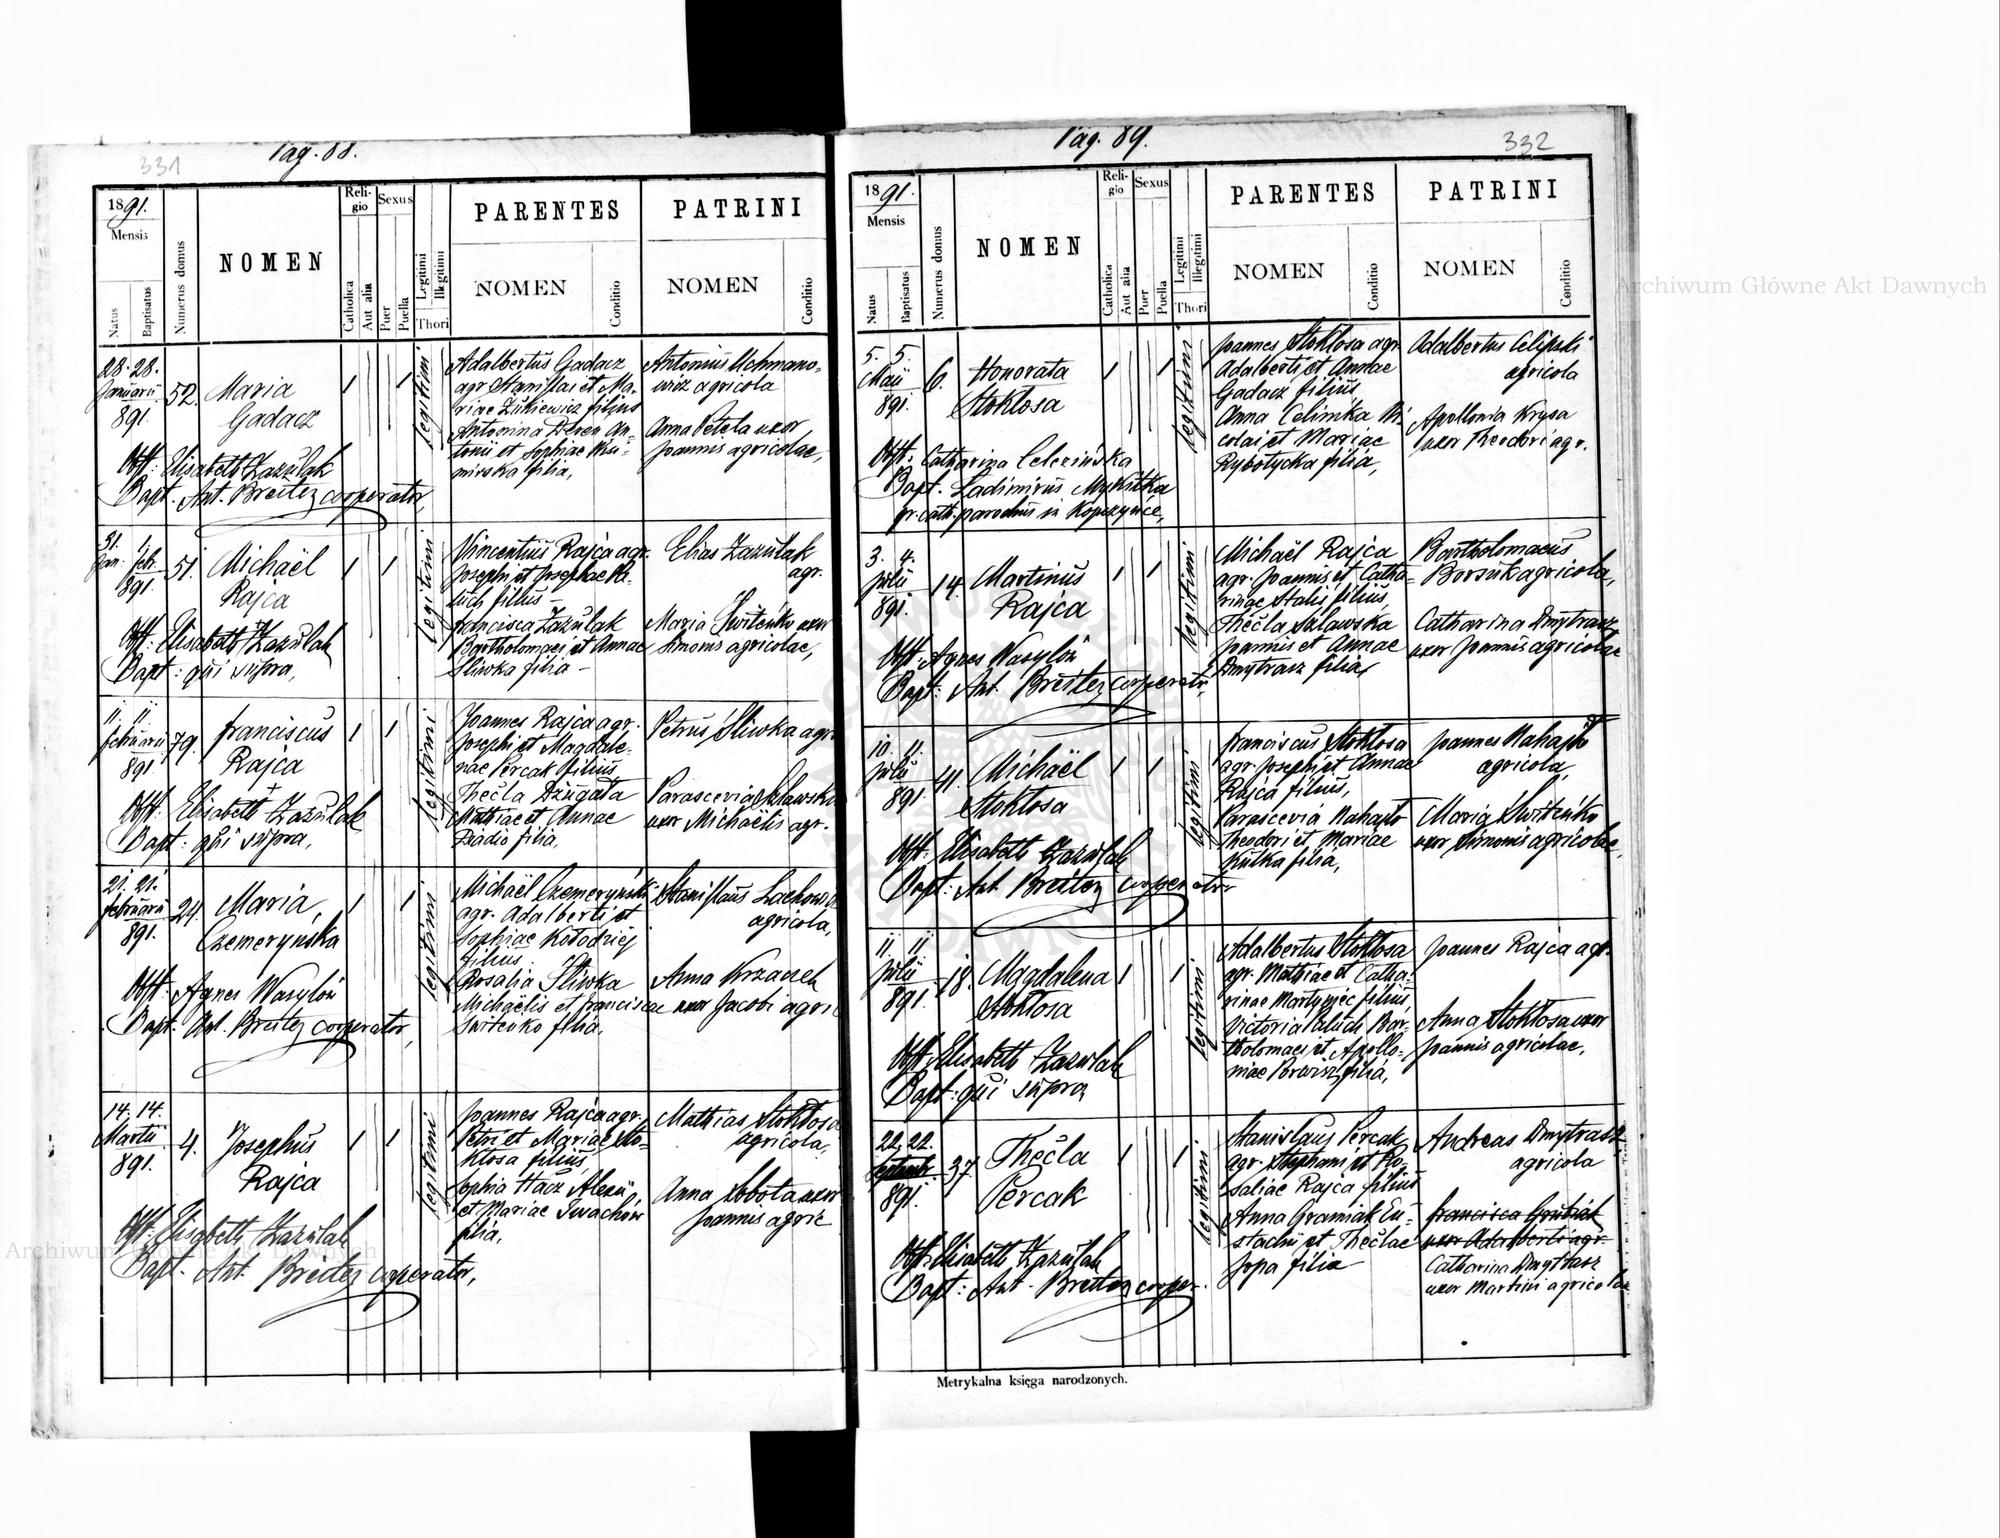 Pag. 88.
331
1891.
Mensis
Natus
Baptisatus
Numerus domus
NOMEN
Religio
Catholica
Aut alia
Sexus
Puer
Puella
Legitimi
Illegitimi
Thori
PARENTES
NOMEN
Conditio
PATRINI
NOMEN
Conditio
28. 28.
Januarii
891.
52.
Maria
Gadacz
legitimi
Adalbertus Gadacz
agr. Stanislai et Ma-
riae Zukiewicz filius
Antonina Deren An-
tonii et Sophiae
filia,
Antonius Uchmano-
wicz agricola
Anna Petela uxor
Joannis agricolae,
Obst: Elisabeth Zazulak
Bapt. Ant. Breitez cooperator,
31. 1.
Jan. Feb.
891.
51.
Michaël
Rajca
legitimi
Vincentius Rajca agr.
Josephi et Josephae Pa-
luch filius –
Francisca Zazulak
Bartholomaei et Annae
Sliwka filia –
Elias Zazulak
agr.
Maria Switenko uxor
Simonis agricolae,
Obst: Elisabeth Zazulak
Bapt: qui supra,
11. 11.
Februarii
891.
79.
Franciscus
Rajca
legitimi
Joannes Rajca agr.
Josephi et Magdale-
nae Percak filius,
Thecla Dzugała
Mathiae et Annae
Dziadio filia,
Petrus Sliwka agr.
Parascevia Szlawska
uxor Michaëlis agr.
Obst: Elisabeth Zazulak
Bapt: qui supra,
21. 21.
Februarii
891.
24.
Maria,
Czemeryńska
legitimi
Michaël Czemeryński
agr. Adalberti et
Sophiae Kołodziej
filius.
Rosalia Śliwka
Michaëlis et Franciscae
Switenko filia,
Stanislaus
agricola,
Anna
uxor Jacobi agric
Obst: Agnes Wasylów
Bapt: Ant. Breitez cooperator,
14. 14.
Martii
891.
4.
Josephus
Rajca
legitimi
Joannes Rajca agr.
Petri et Mariae Sto-
kłosa filius,
Sophia Hacz Alexii
et Mariae Iwachów
filia,
Mathias Stokłosa
agricola,
Anna Sobota uxor
Joannis agric
Obst: Elisabeth Zazulak
Bapt. Ant. Breitez cooperator,
Pag. 89.
332
1891.
Mensis
Natus
Baptisatus
Numerus domus
NOMEN
Religio
Catholica
Aut alia
Sexus
Puer
Puella
Legitimi
Illegitimi
Thori
PARENTES
NOMEN
Conditio
PATRINI
NOMEN
Conditio
5. 5.
Maii
891.
6.
Honorata
Stokłosa
legitimi
Joannes Stokłosa agr.
Adalberti et Annae
Gadacz filius
Anna Ni-
colai et Mariae
Rybotycka filia,
Adalbertus
agricola
Apollonia Krysa
uxor Theodori agr.
Obst: Catharina
Bapt. Ladimirus Mykitka
gr. cath. parochus in Kopczyńce,
3. 4.
Julii
891.
14.
Martinus
Rajca
legitimi
Michaël Rajca
agr. Joannis et Catha-
rinae Stalis filius,
Thecla Szlawska
Joannis et Annae
Dmytrasz filia,
Bartholomaeus
Borsuk agricola,
Catharina Dmytrasz
uxor Joannis agricolae
Obst: Agnes Wasylów
Bapt: Ant. Breitez cooperator,
10. 11.
Julii
891.
41.
Michaël
Stokłosa
legitimi
Franciscus Stokłosa
agr. Josephi et Annae
Rajca filius,
Parascevia Nahajło
Theodori et Mariae
Kulka filia,
Joannes Nahajło
agricola,
Maria Switenko
uxor Simonis agricolae,
Obst: Elisabeth Zazulak
Bapt: Ant. Breitez cooperator
11. 11.
Julii
891.
18.
Magdalena
Stokłosa
legitimi
Adalbertus Stokłosa
agr. Mathiae et Catha-
rinae Martyniec filius,
Victoria Paluch Bar-
tholomaei et Apollo-
niae filia,
Joannes Rajca agr.
Anna Stokłosa uxor
Joannis agricolae,
Obst: Elisabeth Zazulak
Bapt: qui supra
22. 22.
Septemb.
891.
37.
Thecla
Percak
legitimi
Stanislaus Percak
agr. Stephani et Ro-
saliae Rajca filius
Anna Gramiak Eu-
stachii et Theclae
Jopa filia
Andreas Dmytrasz
agricola
Francisca Grubiak
uxor Adalberti agr.
Catharina Dmytrasz
uxor Martini agricolae
Obst: Elisabeth Zazulak
Bapt: Ant. Breitez cooper.
Metrykalna księga narodzonych.
Archiwum Główne Akt Dawnych
Archiwum Główne Akt Dawnych